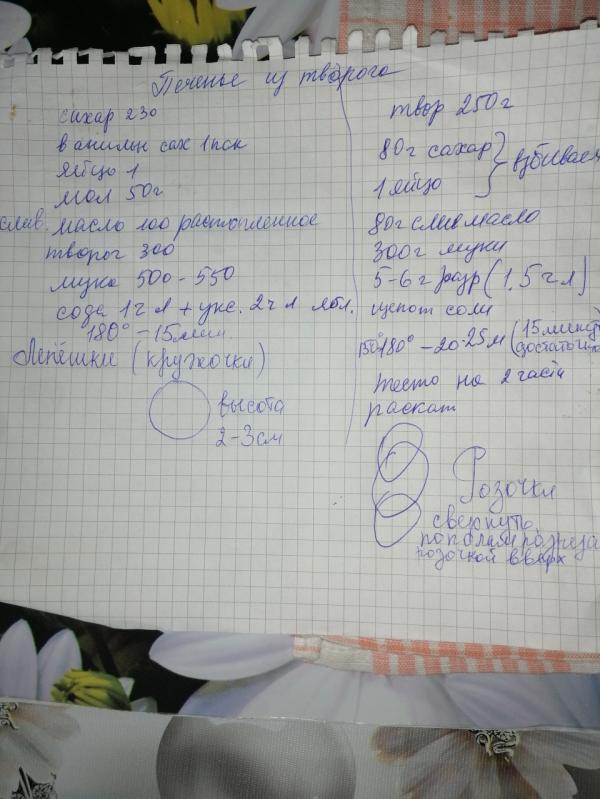 Печенье из творога
сахар 230
ванильн сах 1 пак
яйцо 1
мол 50г
слив. масло 100 растопленное
творог 300
мука 500-550
сода 1 ч л + укс. 2 ч л ябл.
180° - 15 мин.
Лепёшки (кружочки)
высота
2-3 см
твор 250 г
80 г сахар
1 яйцо
взбиваем
80 г слив масло
300 г муки
5-6 г разр (1,5 ч л)
щепот соли
180° - 20-25 м (15 минут
достаточно
тесто на 2 часа
раскат
Розочки
свернуть,
пополам разреза
розочкой вверх